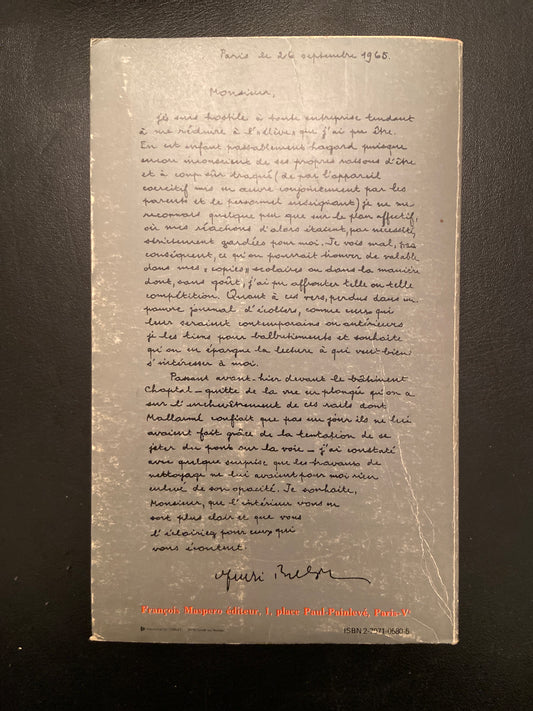 Paris le 26 septembre 1965.
Monsieur,
Je suis hostile à toute entreprise tendant
à me réduire à l'« élève » que j'ai pu être.
En cet enfant passablement hagard puisque
encore inconscient de ses propres raisons d'être
et à coup sûr traqué (de par l'appareil
coercitif mis en œuvre conjointement par les
parents et le personnel enseignant) je ne me
reconnais quelque peu que sur le plan affectif,
où mes réactions d'alors étaient, par nécessité,
strictement gardées pour moi. Je vois mal, par
conséquent, ce qu'on pourrait trouver de valable
dans mes « copies » scolaires ou dans la manière
dont, sans goût, j'ai pu affronter telle ou telle
compétition. Quant à ces vers, perdus dans un
pauvre journal d'écoliers, comme ceux qui
leur seraient contemporains ou antérieurs
je les tiens pour balbutiements et souhaite
qu'on en épargne la lecture à qui veut bien
s'intéresser à moi.
Passant avant-hier devant le bâtiment
Chaptal – quitte de la vue en plongée qu'on a
sur l'enchevêtrement de ces rails dont
Mallarmé confiait que pas un jour ils ne lui
avaient fait grâce de la tentation de se
jeter du pont sur la voie – j'ai constaté
avec quelque surprise que les travaux de
nettoyage ne lui avaient pour moi rien
enlevé de son opacité. Je souhaite,
Monsieur, que l'intérieur vous en
soit plus clair et que vous
l'éclairiez pour ceux qui
vous écoutent.
François Maspero éditeur, 1, place Paul-Painlevé, Paris-V
ISBN 2-7071-0580-5